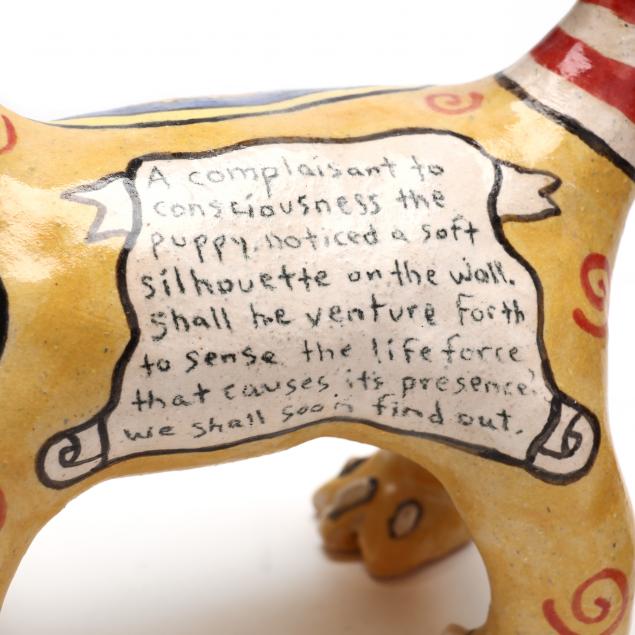 A complaisant to
consciousness the
puppy, noticed a soft
silhouette on the wall.
Shall he venture forth
to sense the life force
that causes its presence,
we shall soon find out.